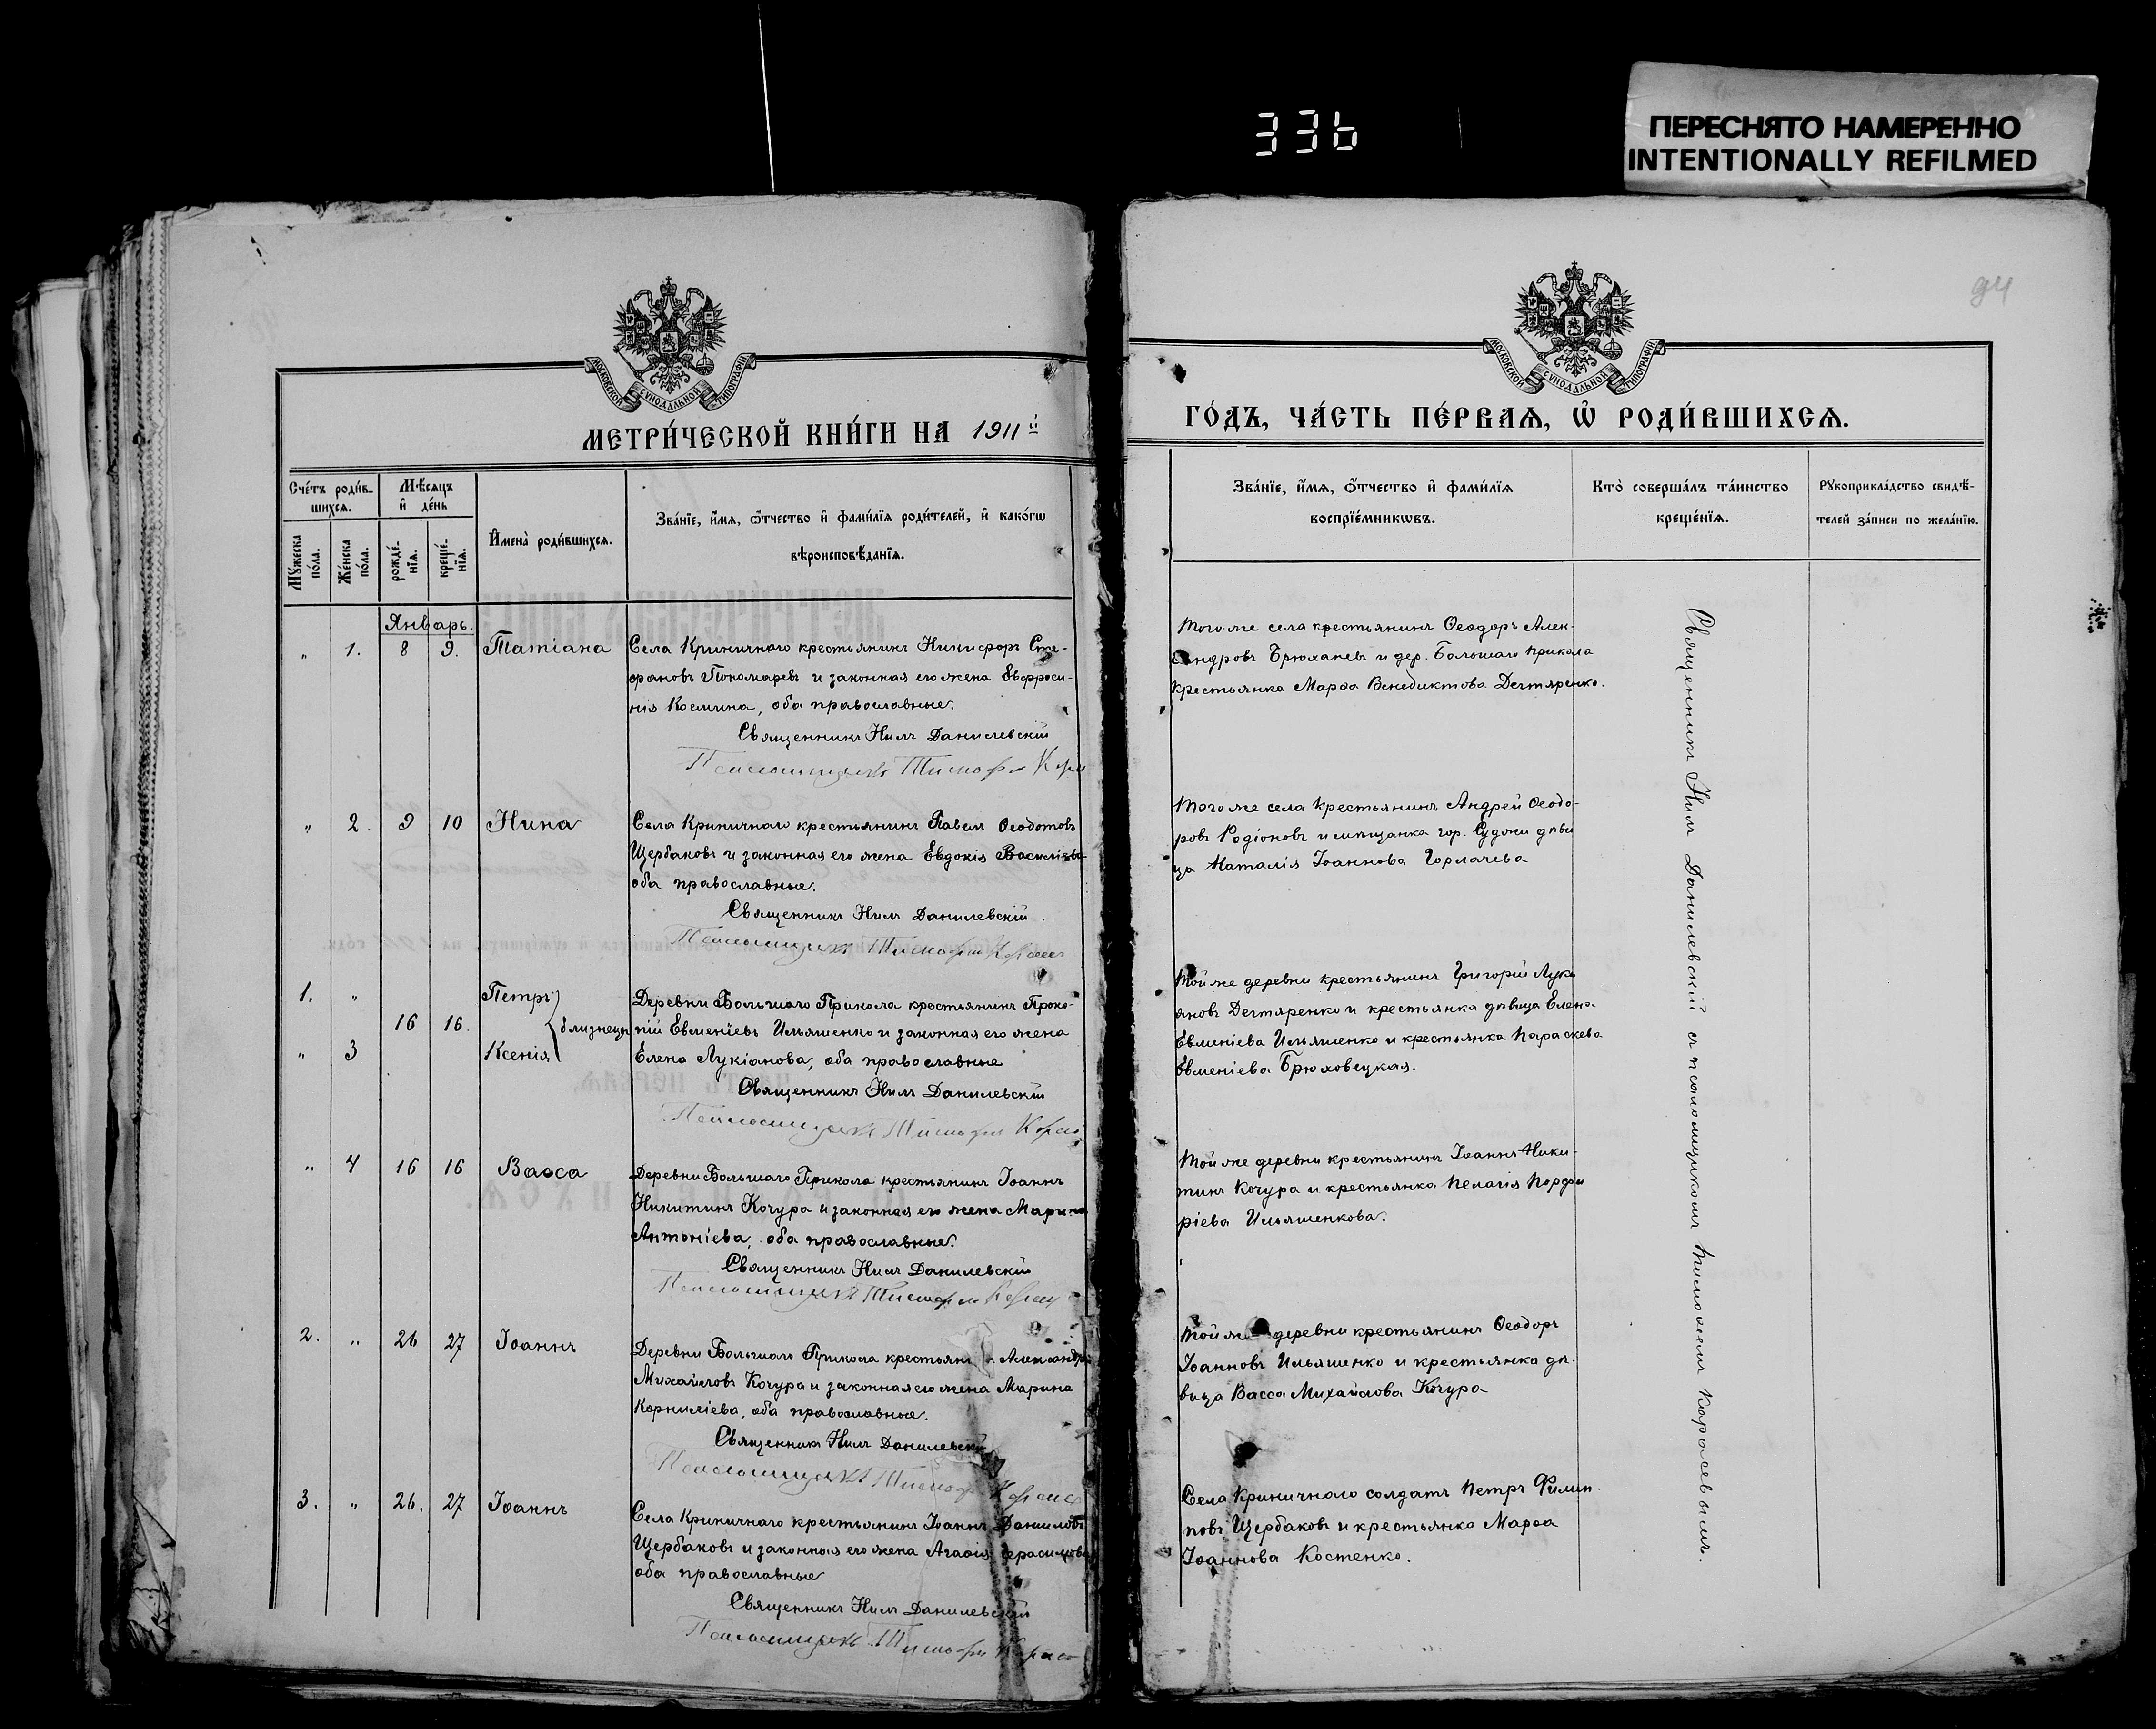 336
ПЕРЕСНЯТО НАМЕРЕННО
INTENTIONALLY REFILMED
94
МОСКОВСКОЙ СѴНОДАЛЬНОЙ ТИПОГРАФІИ
МОСКОВСКОЙ СѴНОДАЛЬНОЙ ТИПОГРАФІИ
МЕТРИ́ЧЕСКОЙ КНИ́ГИ НА 1911й
ГО́ДЪ, ЧА́СТЬ ПЕ́РВАѦ, Ѡ҆ РОДИ́ВШИХСѦ.
Сче́тъ роди́в-
шихсѧ.
Мѣ́сѧцъ
и҆ де́нь
Мꙋ́жеска
по́ла.
Же́нска
по́ла.
рожде́-
нїѧ.
креще́-
нїѧ.
И҆мена̀ роди́вшихсѧ.
Зва́нїе, и҆́мѧ, ѻ҆́тчество и҆ фами́лїѧ роди́телей, и҆ како́гѡ
вѣроисповѣ́данїѧ.
Зва́нїе, и҆́мѧ, ѻ҆́тчество и҆ фами́лїѧ
воспрїе́мникѡвъ.
Кто̀ соверша́лъ та́инство
креще́нїѧ.
Рꙋкоприкла́дство свидѣ́-
телей за́писи по жела́нїю.
Январь.
" 1. 8 9. Татіана
Села Криничнаго крестьянинъ Никифоръ Сте-
фановъ Пономаревъ и законная его жена Евфроси-
нія Космина, оба православные.
Священникъ Нилъ Данилевскій
Псаломщикъ Тимофей
Того же села крестьянинъ Ѳеодоръ Алек-
сандровъ Брюхановъ и дер. Большаго Прикола
крестьянка Марѳа Венедиктова Дегтяренко.
" 2. 9 10 Нина
Села Криничнаго крестьянинъ Павелъ Ѳеодотовъ
Щербаковъ и законная его жена Евдокія Василіева
оба православные.
Священникъ Нилъ Данилевскій.
Псаломщикъ Тимофей
Того же села крестьянинъ Андрей Ѳеодо-
ровъ Родіоновъ и мѣщанка гор. Суджи дѣви
ца Наталія Іоаннова Горлачева
1. " Петръ
16 16. близнецы
" 3 Ксенія
Деревни Большаго Прикола крестьянинъ Проко-
пій Евменіевъ Ильяшенко и законная его жена
Елена Лукіанова, оба православные
Священникъ Нилъ Данилевскій
Псаломщикъ Тимофей
Той же деревни крестьянинъ Григорій Луки
ановъ Дегтяренко и крестьянка дѣвица Елена
Евменіева Ильяшенко и крестьянка Параскева
Евменіева Брюховецкая.
" 4 16 16 Васса
Деревни Большаго Прикола крестьянинъ Іоаннъ
Никитинъ Кочура и законная его жена Марина
Антоніева, оба православные.
Священникъ Нилъ Данилевскій
Псаломщикъ Тимофей
Той же деревни крестьянинъ Іоаннъ Ники-
тинъ Кочура и крестьянка Пелагія Порфи
ріева Ильяшенкова.
2. " 26 27 Іоаннъ
Деревни Большаго Прикола Александръ
Михайловъ Кочура и законная его жена Марина
Корниліева, оба православные.
Священникъ Нилъ Данилевскій
Псаломщикъ Тимофей
Той же деревни крестьянинъ Ѳеодоръ
Іоанновъ Ильяшенко и крестьянка дѣ-
вица Васса Михайлова Кочура
3. " 26. 27 Іоаннъ
Села Криничнаго крестьянинъ Іоаннъ Даниловъ
Щербаковъ и законная его жена Агаѳія Герасимова
оба православные
Священникъ Нилъ Данилевскій
Псаломщикъ Тимофей
Села Криничнаго солдатъ Петръ Филип-
повъ Щербаковъ и крестьянка Марѳа
Іоаннова Костенко.
Священникъ Нилъ Данилевскій съ псаломщикомъ Тимоѳеемъ Карасевымъ.